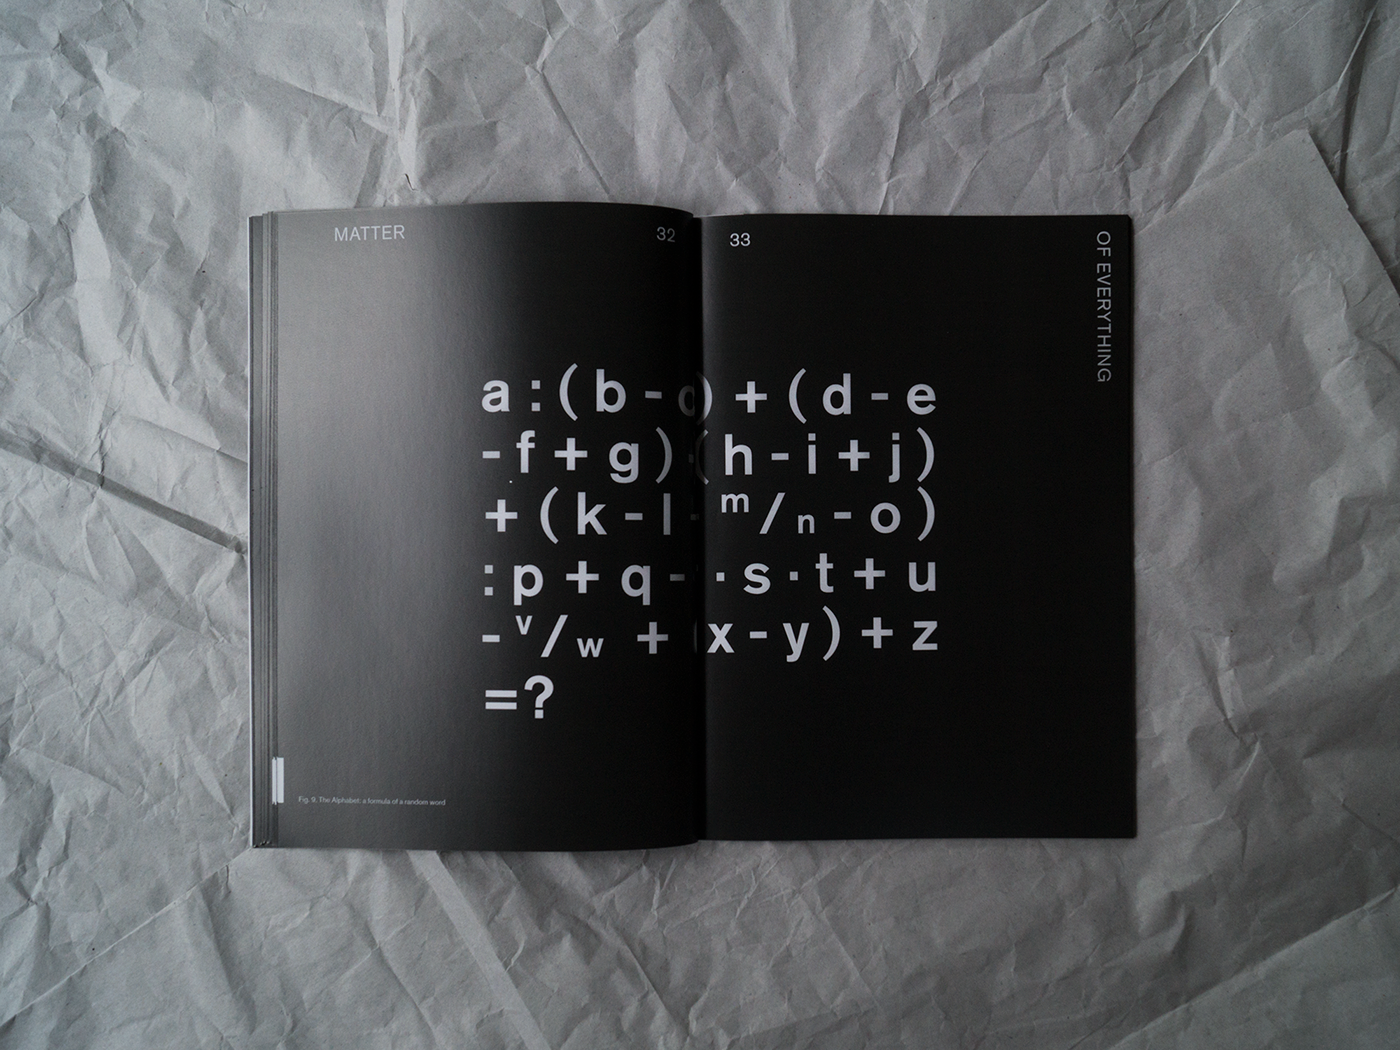 MATTER
32
33
OF EVERYTHING
a:(b-c)+(d-e
-f+g)·(h-i+j)
+(k-l- m/n-o)
:p+q- ·s·t+u
-v/w +(x-y)+z
=?
Fig. 9. The Alphabet: a formula of a random word